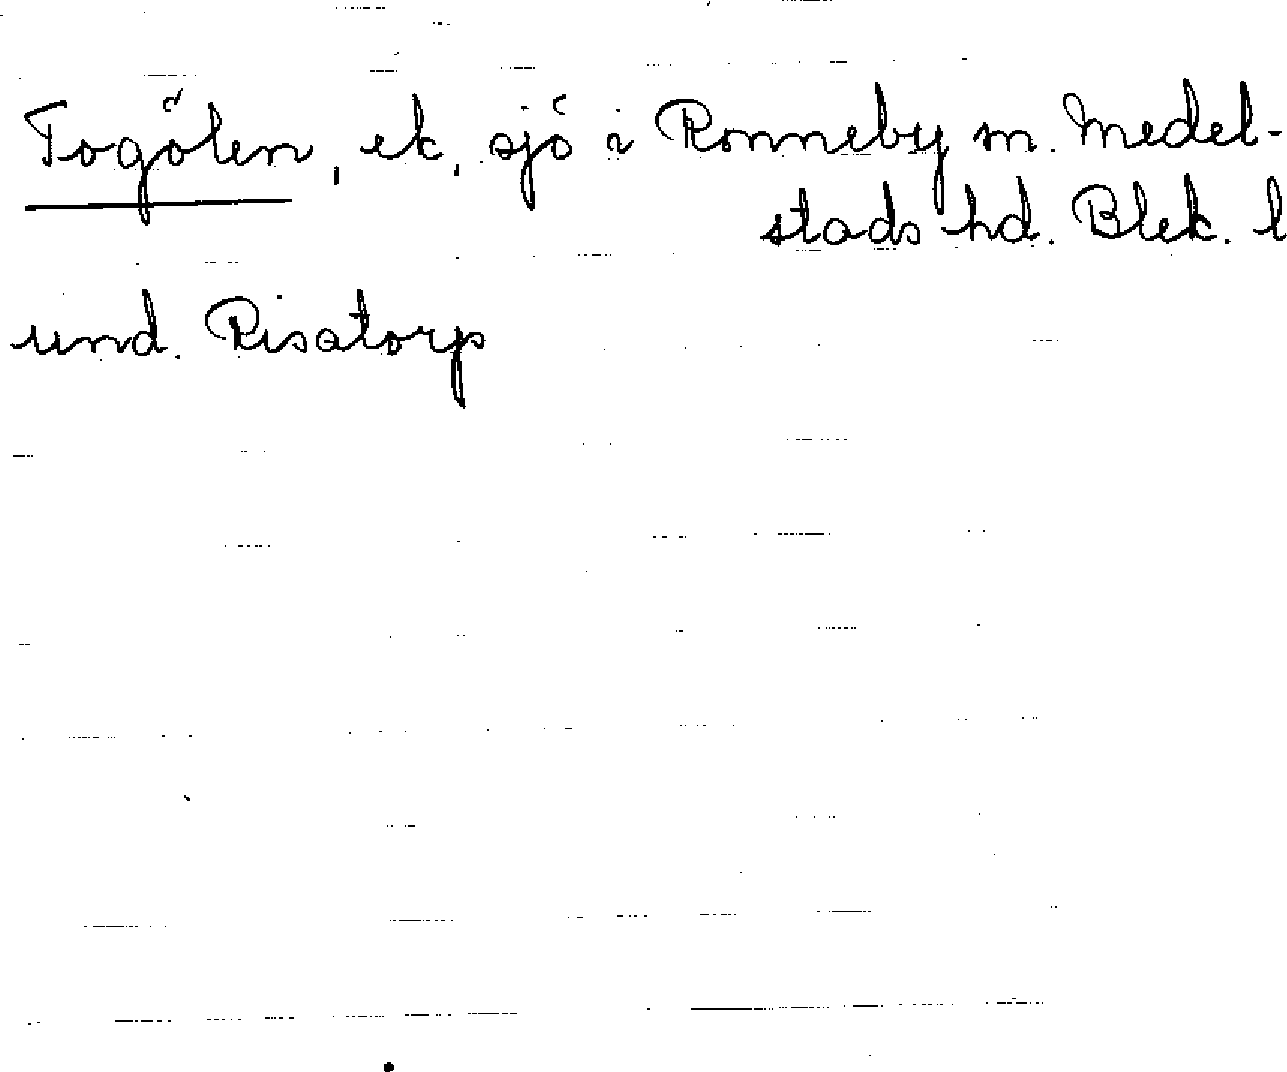 Togölen, ek, sjö i Ronneby sn. Medel-
stads hd. Blek. l
und. Risatorp